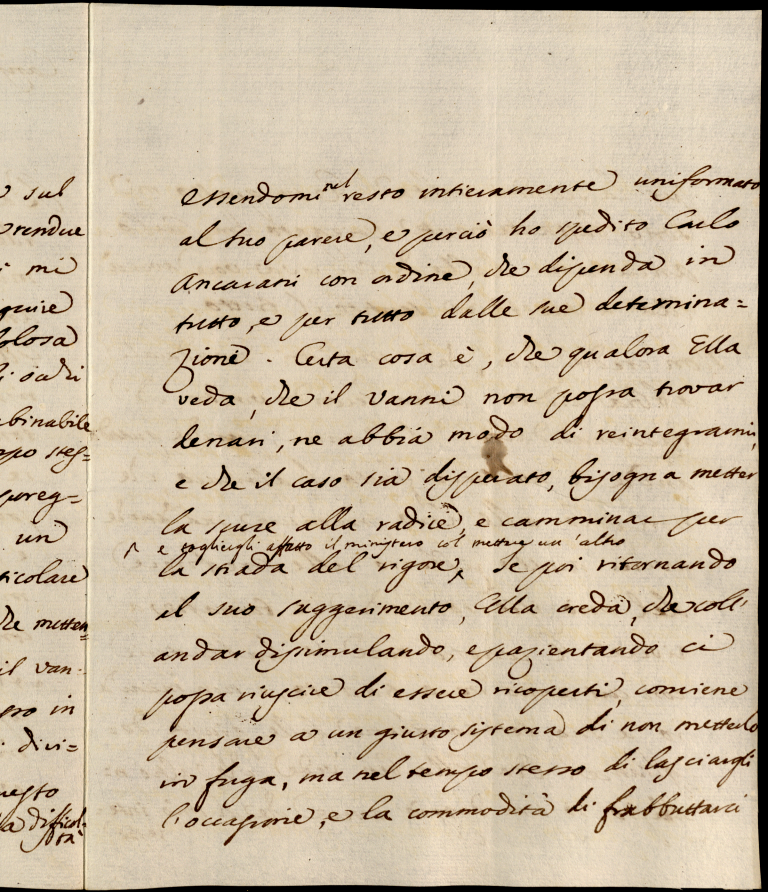 sul
rendue
mi
quire
olosa
binabile
po stes=
preg=
un
ticolare
che metten=
il Van-
sso in
divi=
uesto
a difficol-
tà
essendomi nel resto intieramente uniformato
al suo parere, e perciò ho spedito Carlo
Ancarani con ordine, che dipenda in
tutto, e per tutto dalle sue determina=
zione. Certa cosa è, che qualora Ella
veda, che il Vanni non possa trovar
denari, ne abbia modo di reintegrarmi,
e che il caso sia disperato, bisogna metter
la scure alla radice, e camminar per
e togliergli affatto il ministero col mettere un'altro
la strada del rigore, ^ Se poi ritornando
al suo suggerimento, Ella creda, che coll'
andar dissimulando, e pazientando ci
possa riuscire di essere ricoperti, conviene
pensare a un giusto sistema di non metterlo
in fuga, ma nel tempo stesso di lasciargli
l'occasione, e la commodità di frabbuttarci